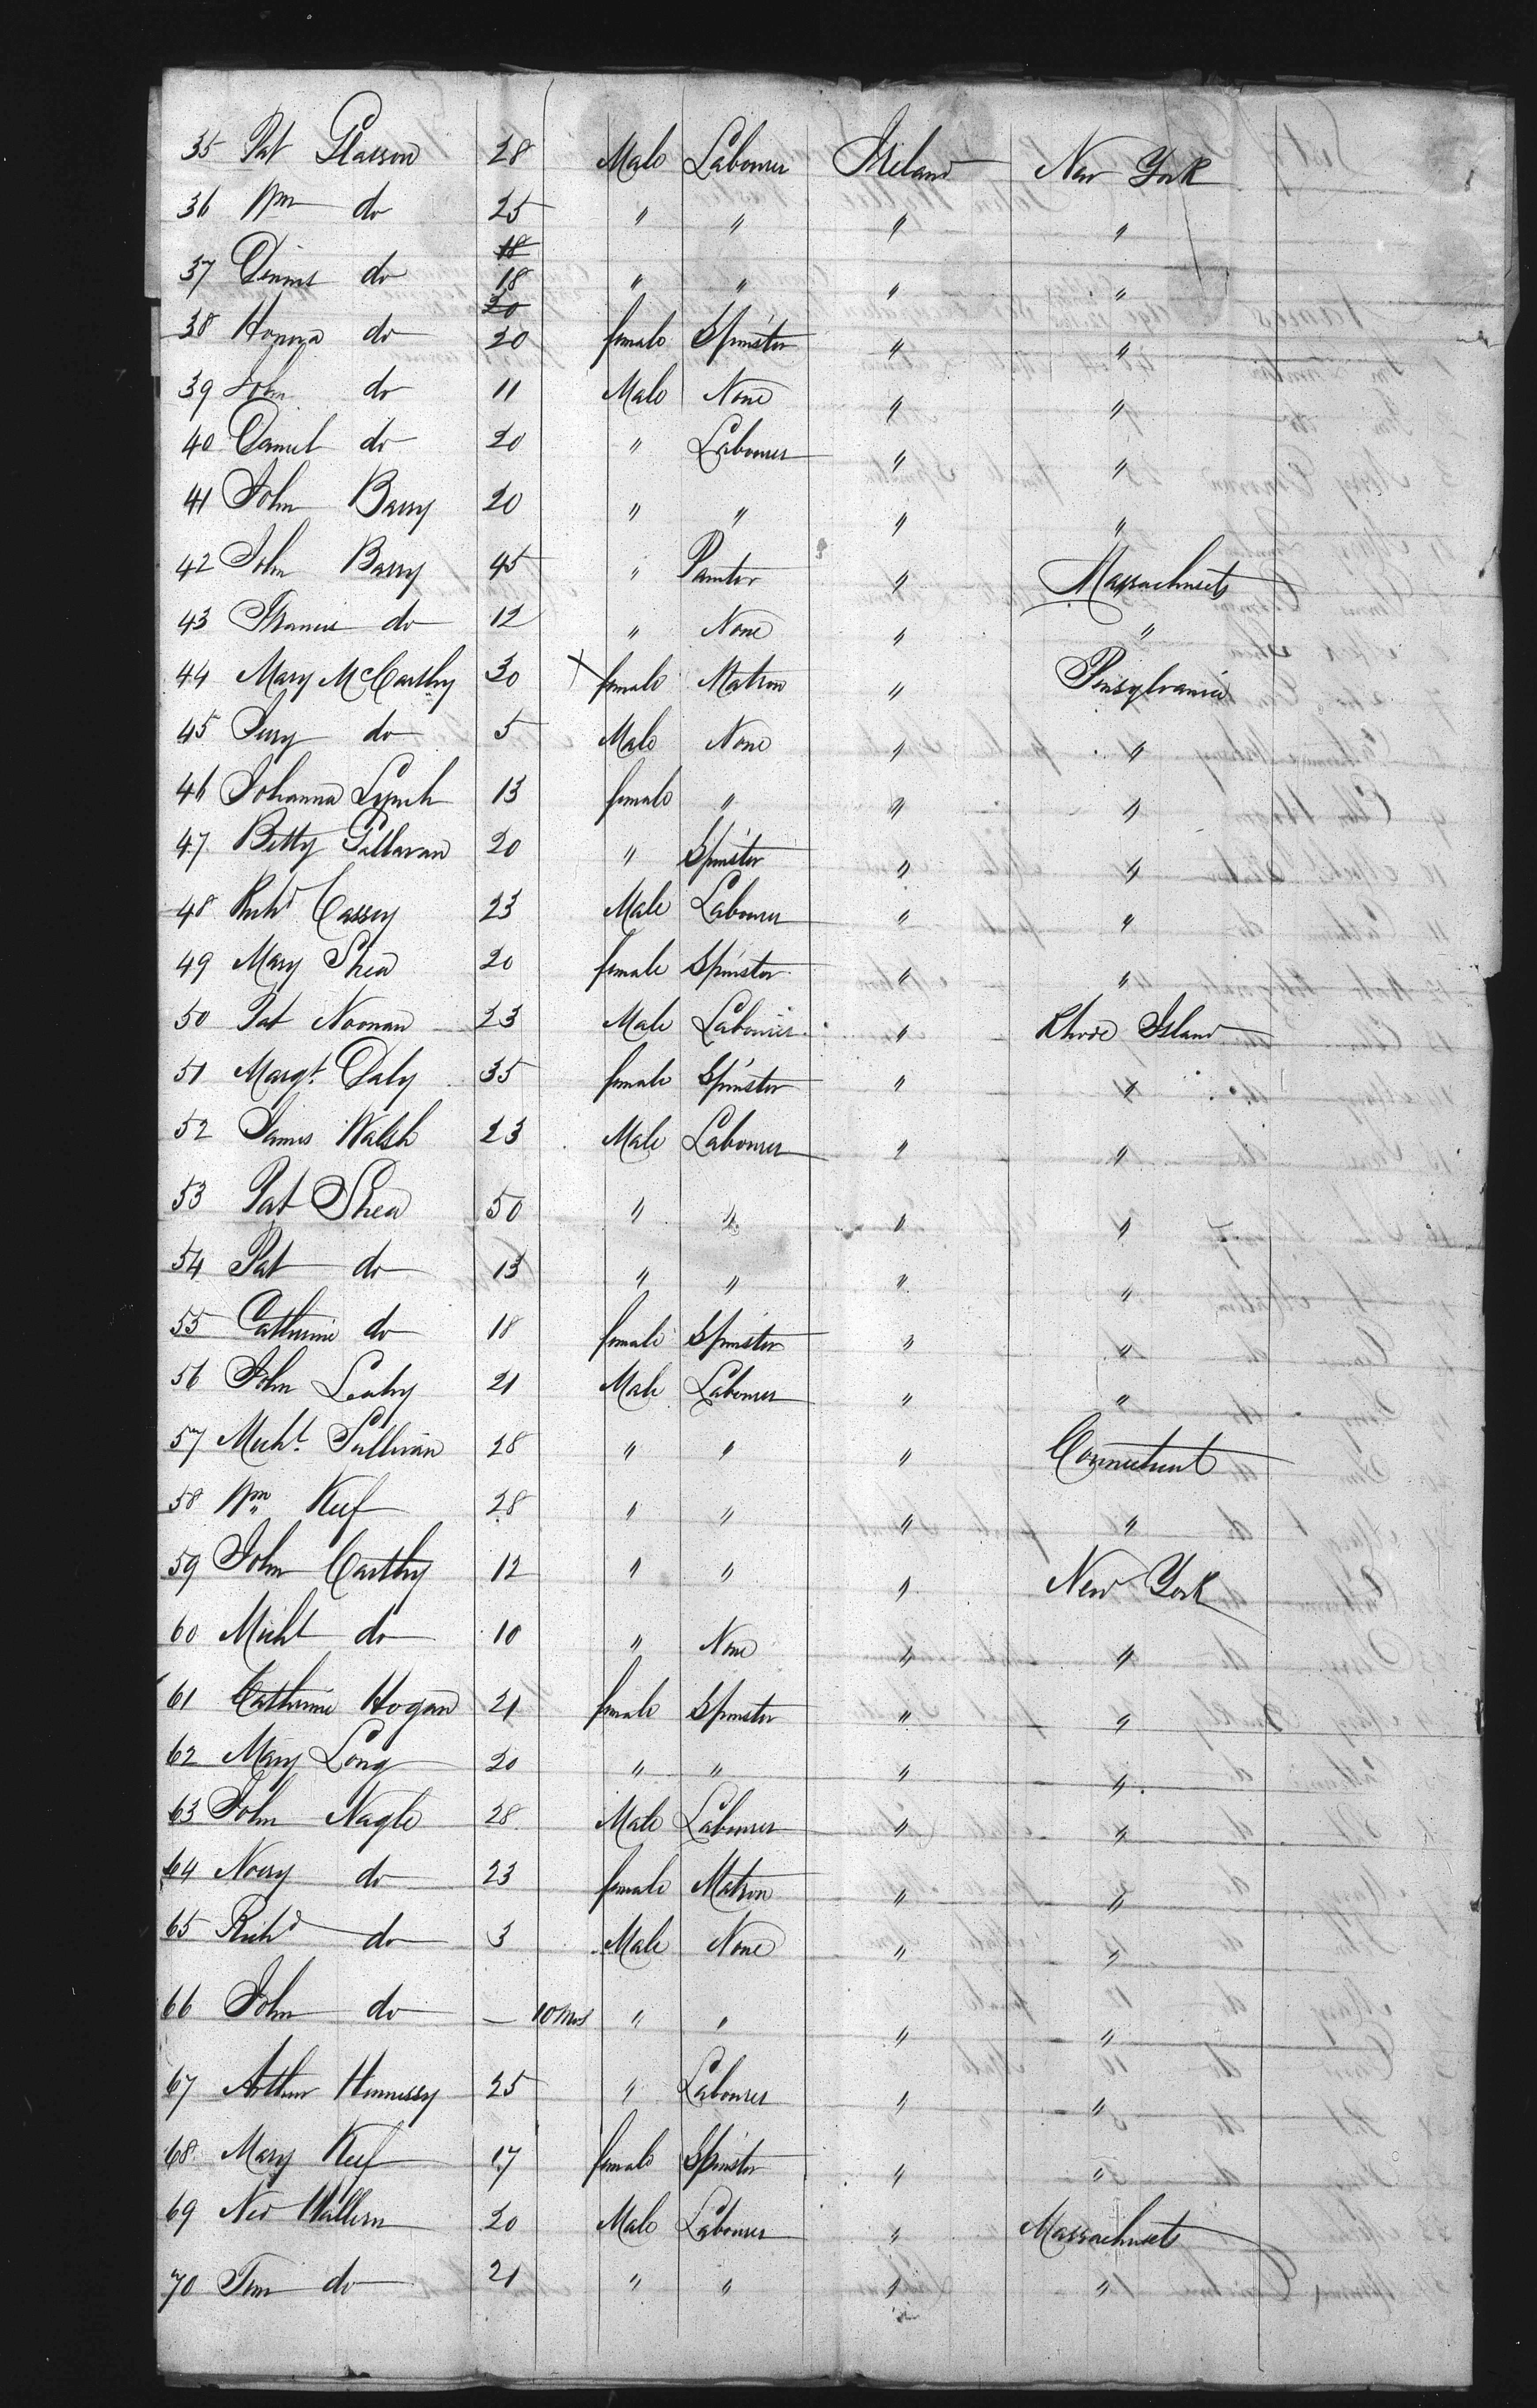 35 Pat Glasson 28 Male Labourer Ireland New York
36 Wm do 25 " " " "
18
37 Dennis do 18 " " " "
20
38 Honora do 20 female Spinster " "
39 John do 11 Male None " "
40 Daniel do 20 " Labourer " "
41 John Barry 20 " " " "
42 John Barry 45 " Painter " Massachusets
43 Francis do 12 " None " "
44 Mary McCarthy 30 X female Matron " Pensylvania
45 Jery do 5 Male None " "
46 Johanna Lynch 13 female " " "
47 Betty Gallavan 20 " Spinster " "
48 Richd Cassey 23 Male Labourer " "
49 Mary Shea 20 female Spinster " "
50 Pat Noonan 23 Male Labourer " Rhode Island
51 Margt. Daly 35 female Spinster " "
52 James Walsh 23 Male Labourer " "
53 Pat Shea 50 " " " "
54 Pat do 13 " " " "
55 Catherine do 18 female Spinster " "
56 John Leahy 21 Male Labourer " "
57 Michl. Sullivan 28 " " " Connecticut
58 Wm Keef 28 " " " "
59 John Carthy 12 " " " New York
60 Michl do 10 " None " "
61 Catherine Hogan 21 female Spinster " "
62 Mary Long 20 " " " "
63 John Nagle 28 Male Labourer " "
64 Nory do 23 female Matron " "
65 Richd do 3 Male None " "
66 John do — 10 mos " " " "
67 Arthur Hennessy 25 " Labourer " "
68 Mary Keef 17 female Spinster " "
69 Ned 20 Male Labourer " Massachusets
70 Tim do 21 " " " "